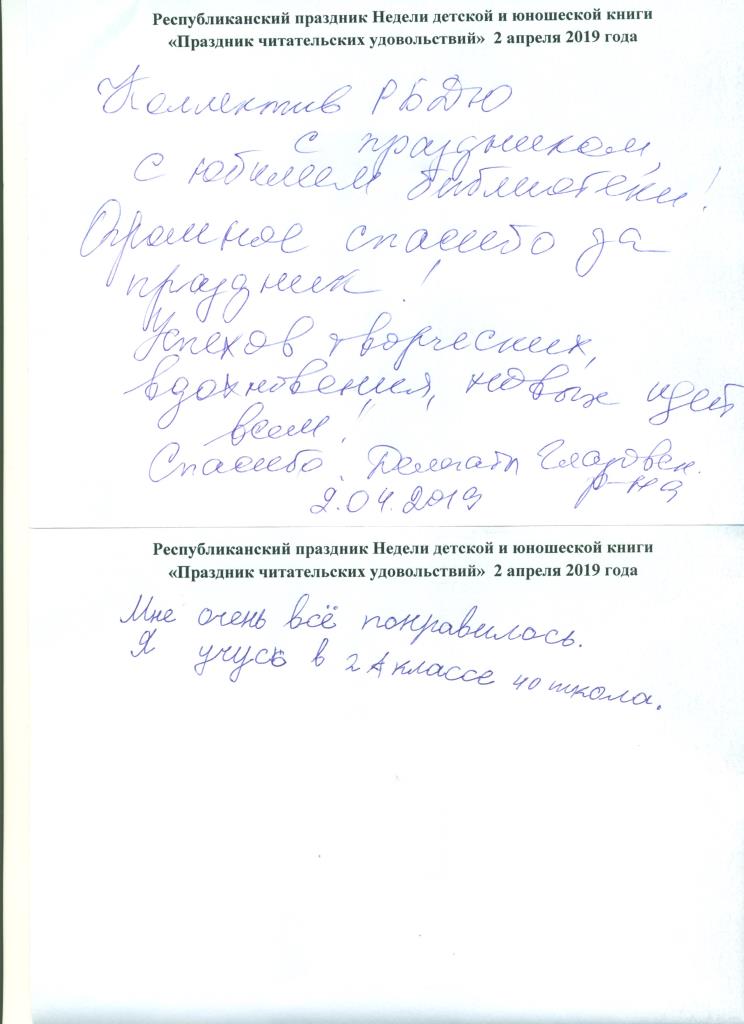 Республиканский праздник Недели детской и юношеской книги
«Праздник читательских удовольствий» 2 апреля 2019 года
Коллектив РБДЮ
с праздником,
с юбилеем библиотеки!
Огромное спасибо за
праздник!
Успехов творческих,
вдохновения, новых идей
всем!
Спасибо. Делегаты Глазовск.
р-на
2.04.2019
Республиканский праздник Недели детской и юношеской книги
«Праздник читательских удовольствий» 2 апреля 2019 года
Мне очень всё понравилось.
Я учусь в 2 А классе 40 школа.